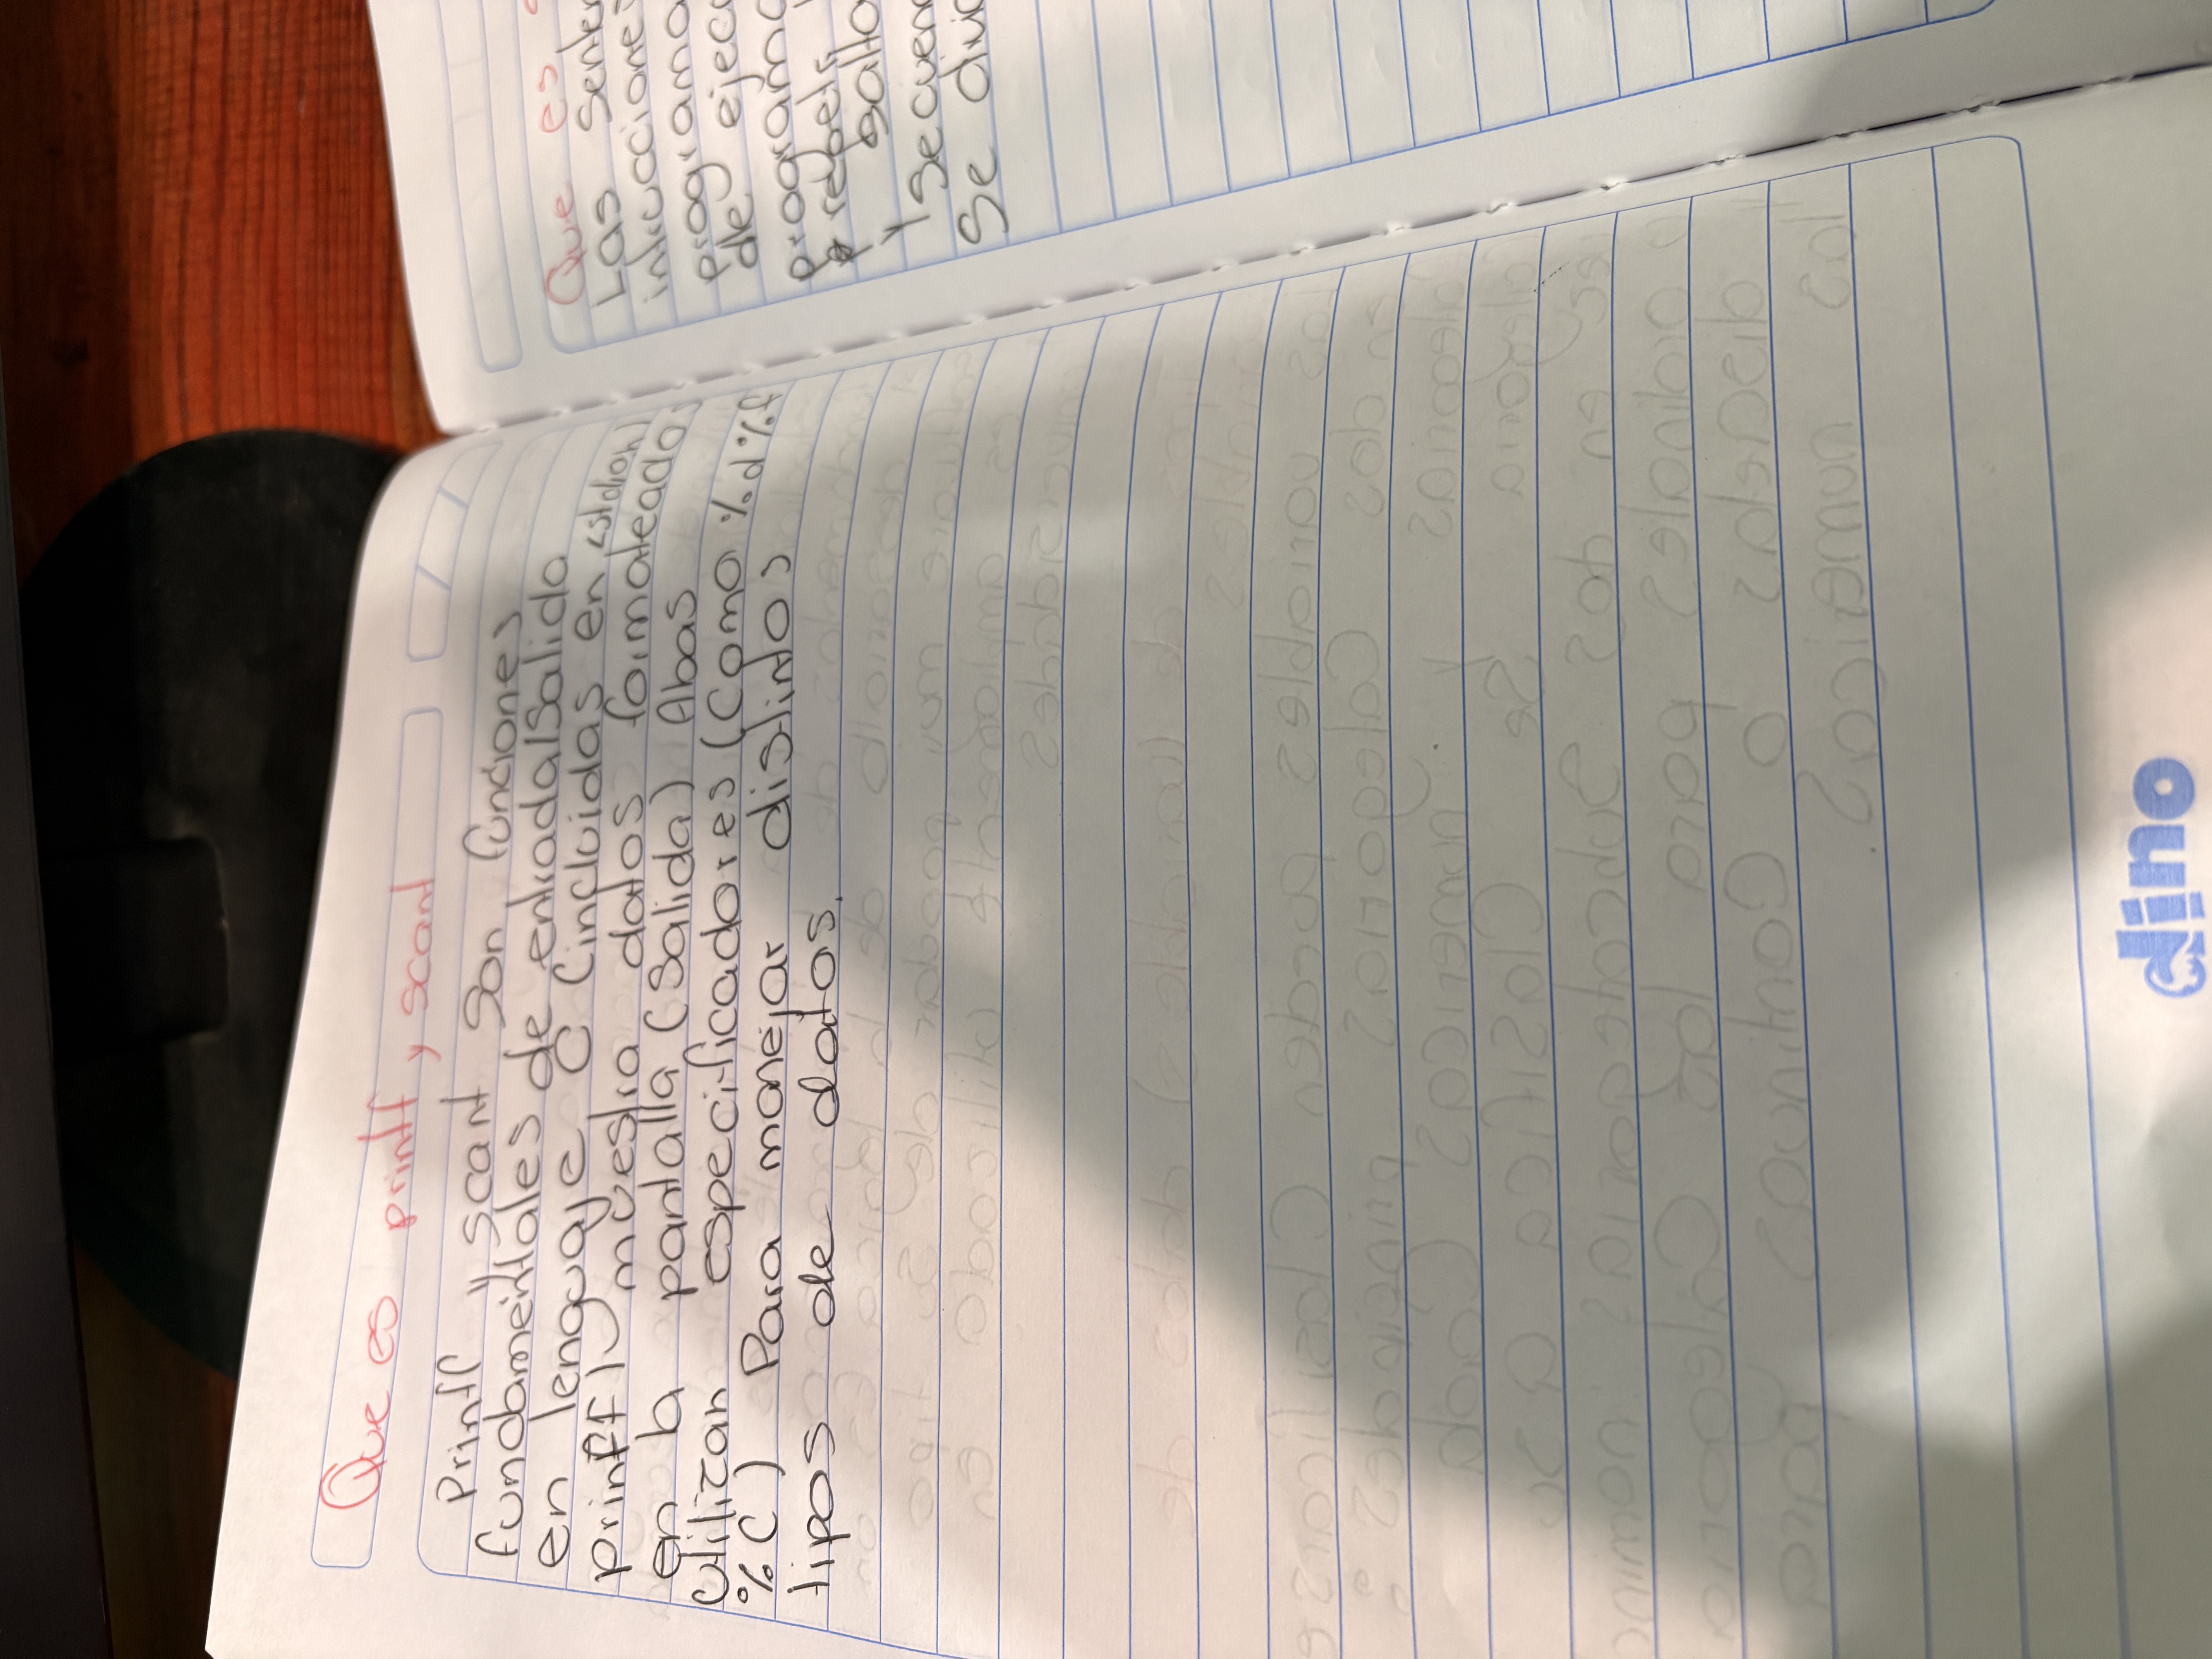 Que es printf y scant
Printf y scant son funciones
fundamentales de entrada/salida
en lenguaje C Cincluidas en <stdioh)
printf() muestra datos formateados
en la pantalla (Salida) Abas
Utilizan especificadores (Como %d %f
%C) Para manejar distintos
tipos de datos.
Que es
Las senten
intrucciones
programa
de ejecu
programa
rebels
salto
y secuen
Se divid
dino